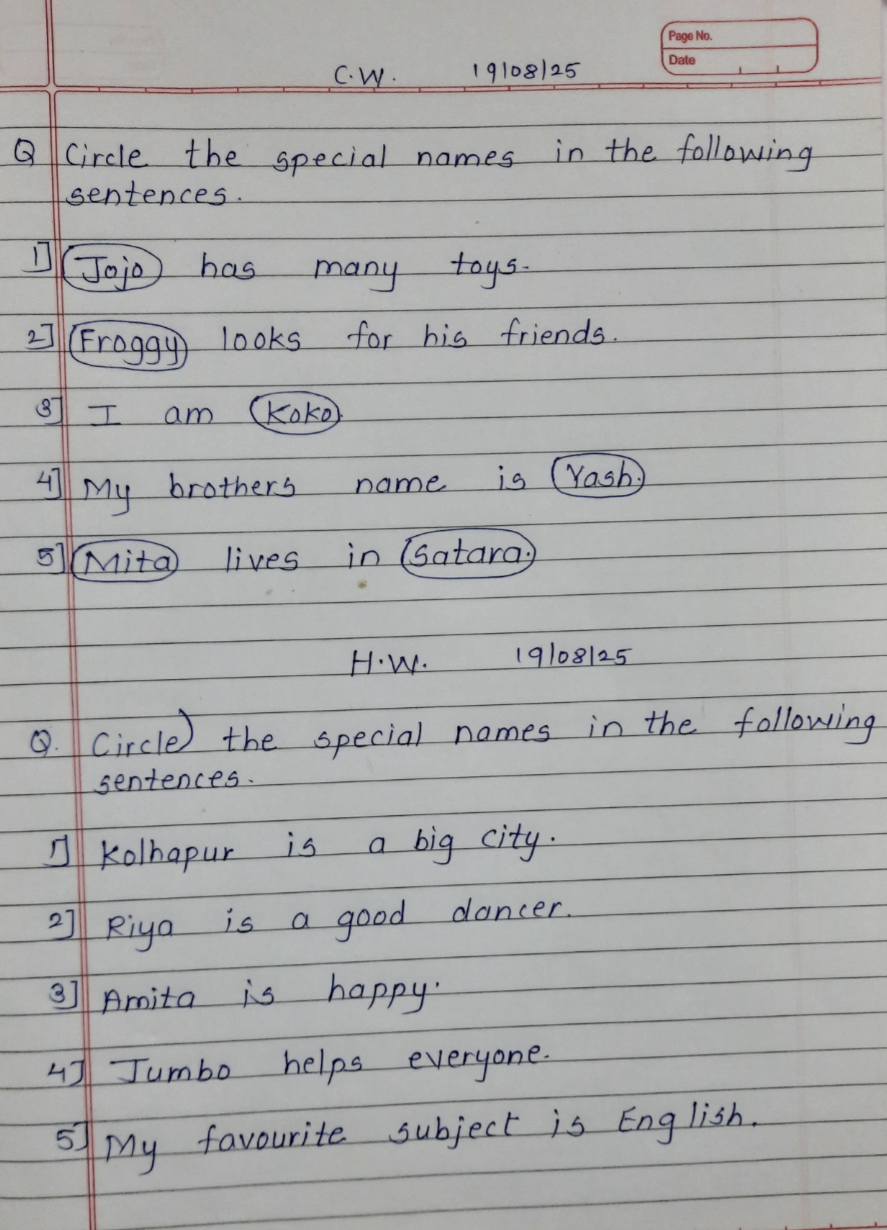 Page No.
Date
C.W. 19/08/25
Q Circle the special names in the following
sentences.
1] Jojo has many toys.
2] Froggy looks for his friends.
3] I am Koko.
4] My brothers name is Yash.
5] Mita lives in Satara.
H.W. 19/08/25
Q. Circle) the special names in the following
sentences.
1] Kolhapur is a big city.
2] Riya is a good dancer.
3] Amita is happy.
4] Jumbo helps everyone.
5] My favourite subject is English.